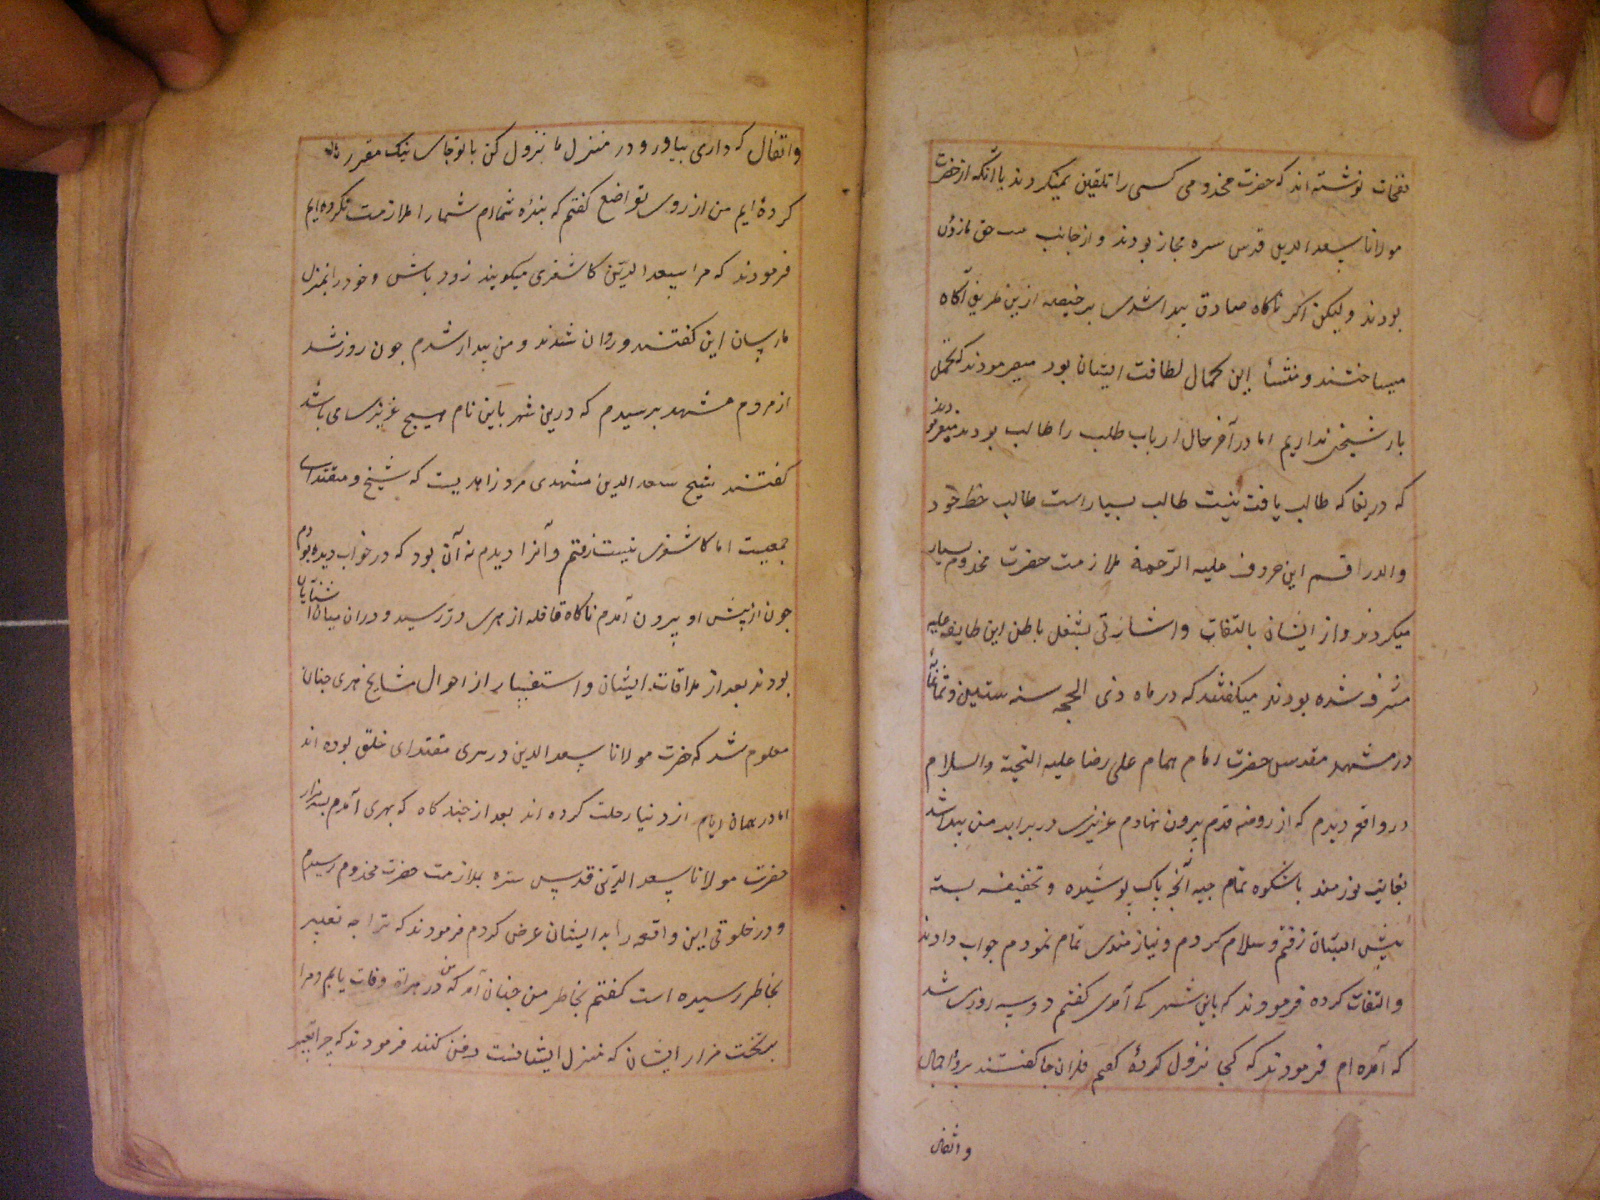 نفحات نوشته اند که حضرت مخدومی کسی را تلقین نمیکردند با آنکه از حضرت
مولانا سعد الدین قدس سره مجاز بودند و از جانب حق ماذون
بودند ولیکن اگر ناکاه صادق پیدا شدی بر خفیه ازین طریق آکاه
میساختند و منشأ این کمال لطافت ایشان بود میفرمودند که تحمل
بار شیخی نداریم اما در آخر حال ارباب طلب را طالب بودند میفرمودند
که دریغا که طالب یافت نیست طالب بسیار است طالب حظ خود
والد راقم این حروف علیه الرحمة ملازمت حضرت مخدوم بسیار
میکردند و از ایشان بالتفات و اشارتی بشغل باطن این طایفه علیه
مشرف شده بودند میکفتند که در ماه ذی الحجه سنه ستین و ثمانمائه
در مشهد مقدس حضرت امام همام علی رضا علیه التحیة والسلام
در واقعه دیدم که از روضه قدم بیرون نهادم عزیزی در برابر من پیدا شد
بغایت نورمند باشکوه تمام جبه پوشیده و تخفیفه بسته
پیش ایشان رفتم و سلام کردم و نیازمندی تمام نمودم جواب دادند
و التفات کرده فرمودند که باین شهر کی آمدی کفتم دو سه روزی شد
که آمده ام فرمودند که کجا نزول کردهٔ کفتم فلان جا کفتند برو احمال
و اثقال
و اثقال که داری بیاور و در منزل ما نزول کن با تو جای نیک مقرر
کردهٔ ایم من از روی تواضع کفتم که بنده شماام شما را ملازمت نکرده ایم
فرمودند که مرا سعد الدین کاشغری میکویند زود باش و خود را بمنزل
ما رسان این کفتند و روان شدند و من بیدار شدم جون روز شد
از مردم مشهد پرسیدم که درین شهر باین نام هیچ عزیزی می باشد
کفتند شیخ سعد الدین مشهدی مرد زاهدیست که شیخ و مقتدای
جمعیست اما کاشغری نیست رفتم و آنرا دیدم نه آن بود که در خواب دیده بودم
جون از پیش او بیرون آمدم ناکاه قافله از هری در رسید و در ان میان آشنایان
بودند بعد از ملاقات ایشان و استفسار از احوال مشایخ هری چنان
معلوم شد که حضرت مولانا سعد الدین در هری مقتدای خلق بوده اند
اما در همان ایام از دنیا رحلت کرده اند بعد از چند کاه که بهری آمدم بسر مزار
حضرت مولانا سعد الدین قدس سره بملازمت حضرت مخدوم رسیدم
و در خلوتی این واقعه را بر ایشان عرض کردم فرمودند که ترا چه تعبیر
بخاطر رسیده است کفتم بخاطر من چنان آمد که من در هراة وفات یابم و مرا
بر تخت مزار ایشان که منزل ایشانست دفن کنند فرمودند که چرا تعبیر